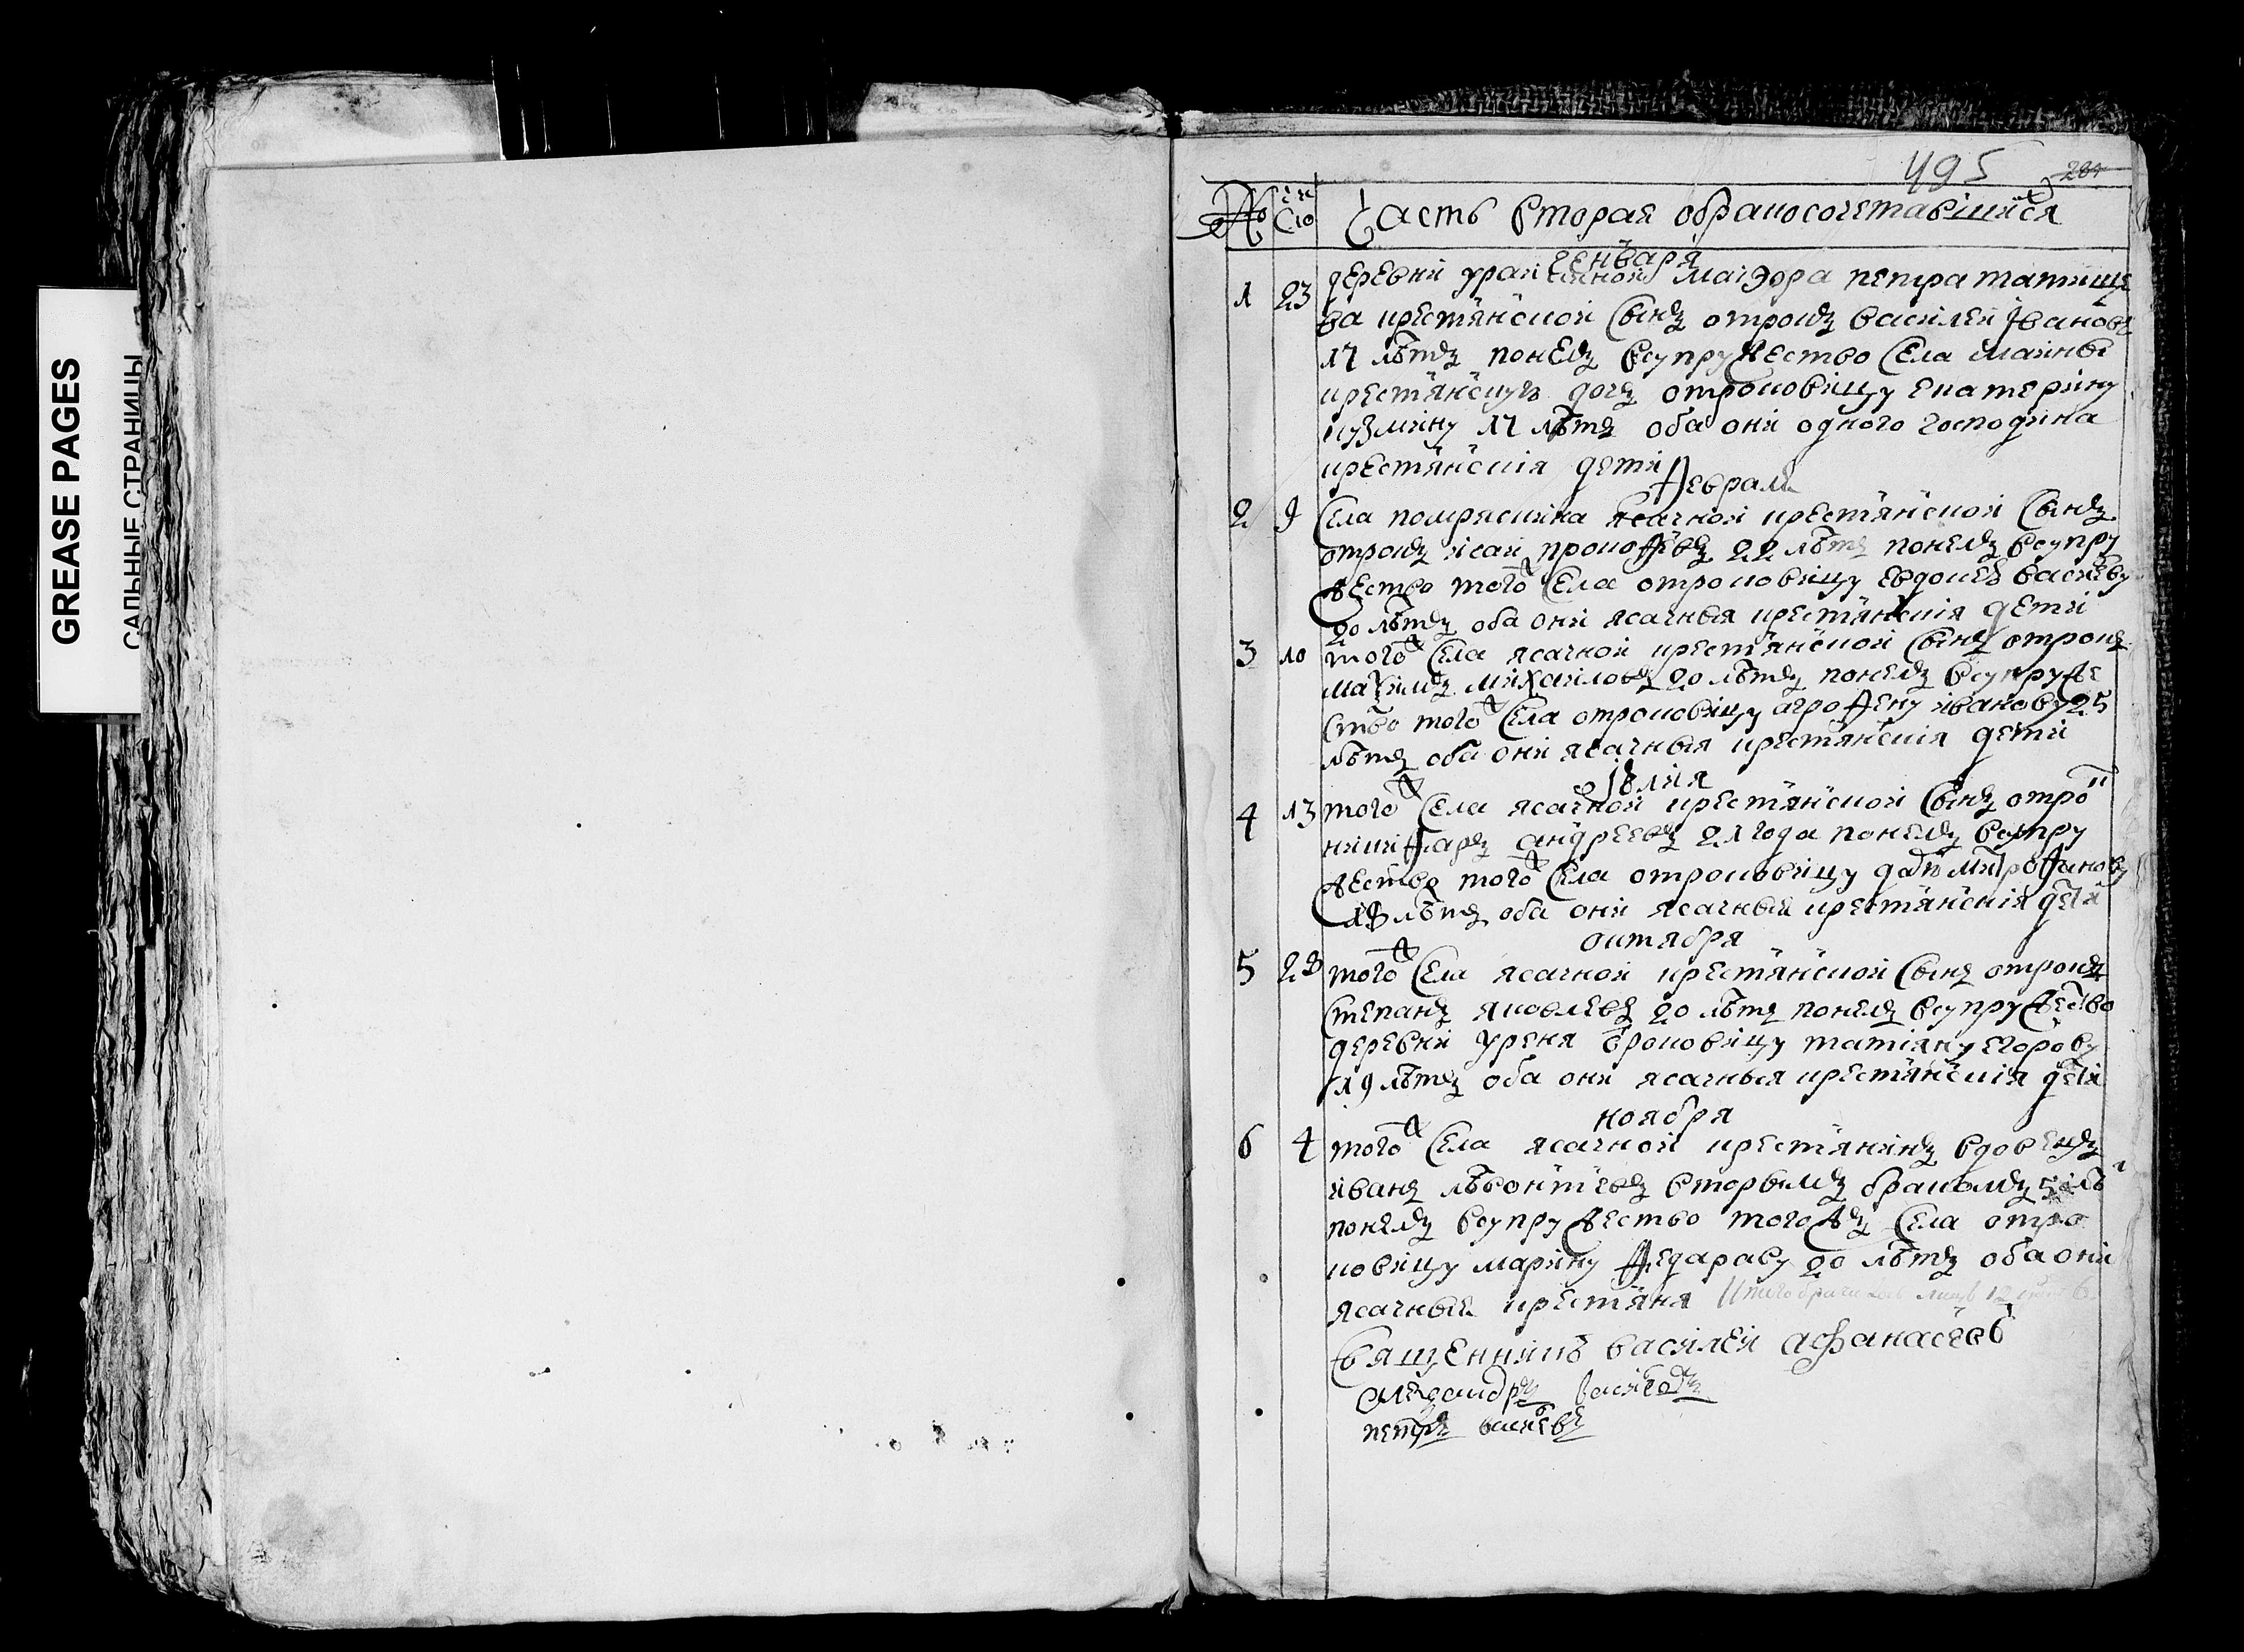 GREASE PAGES
САЛЬНЫЕ СТРАНИЦЫ
495 284
№ Часть вторая обракосочетавшихся
генваря
1 23 деревни маиэора петра татище
ва крестьянской сынъ отрокъ василей Iвановъ
17 лѣтъ понелъ всупружество села маины
крестьянскую дочь отроковицу екатерину
кузмину 17 лѣтъ оба они одного господина
крестьянския дети
февраля
2 9 Села помряскина ясачной крестьянской сынъ
отрокъ исаи прокофьевъ 22 лѣтъ понелъ всупру
жество того ж села отроковицу евдокею васильеву
20 лѣтъ оба они ясачныя крестьянския дети
3 10 того ж села ясачной крестьянской сынъ отрокъ
маξимъ михаиловъ 20 лѣтъ понелъ всупруже
ство того ж села отроковицу агрофену иванову 25
лѣтъ оба они ясачныя крестьянския дети
Iюлия
4 13 того ж села ясачной крестьянской сынъ отрокъ
никифаръ андреевъ 21 года понелъ всупру
жество того ж села отроковицу дарью митрофанову
18 лѣтъ оба они ясачныя крестьянския дети
октября
5 28 того ж села ясачной крестьянской сынъ отрокъ
степанъ яковлевъ 20 лѣтъ понелъ всупружество
деревни уреня отроковицу татияну егорову
19 лѣтъ оба они ясачныя крестьянския дети
ноября
6 4 того ж села ясачной крестьянинъ вдовецъ
иванъ лѣвонтьевъ вторымъ бракомъ лѣтъ
понелъ всупружество того жъ села отро
ковицу марину федараву 20 лѣтъ оба они
ясачныя крестьяня Итого лицъ 12
священникъ василей афанасьевъ
петръ васильевъ